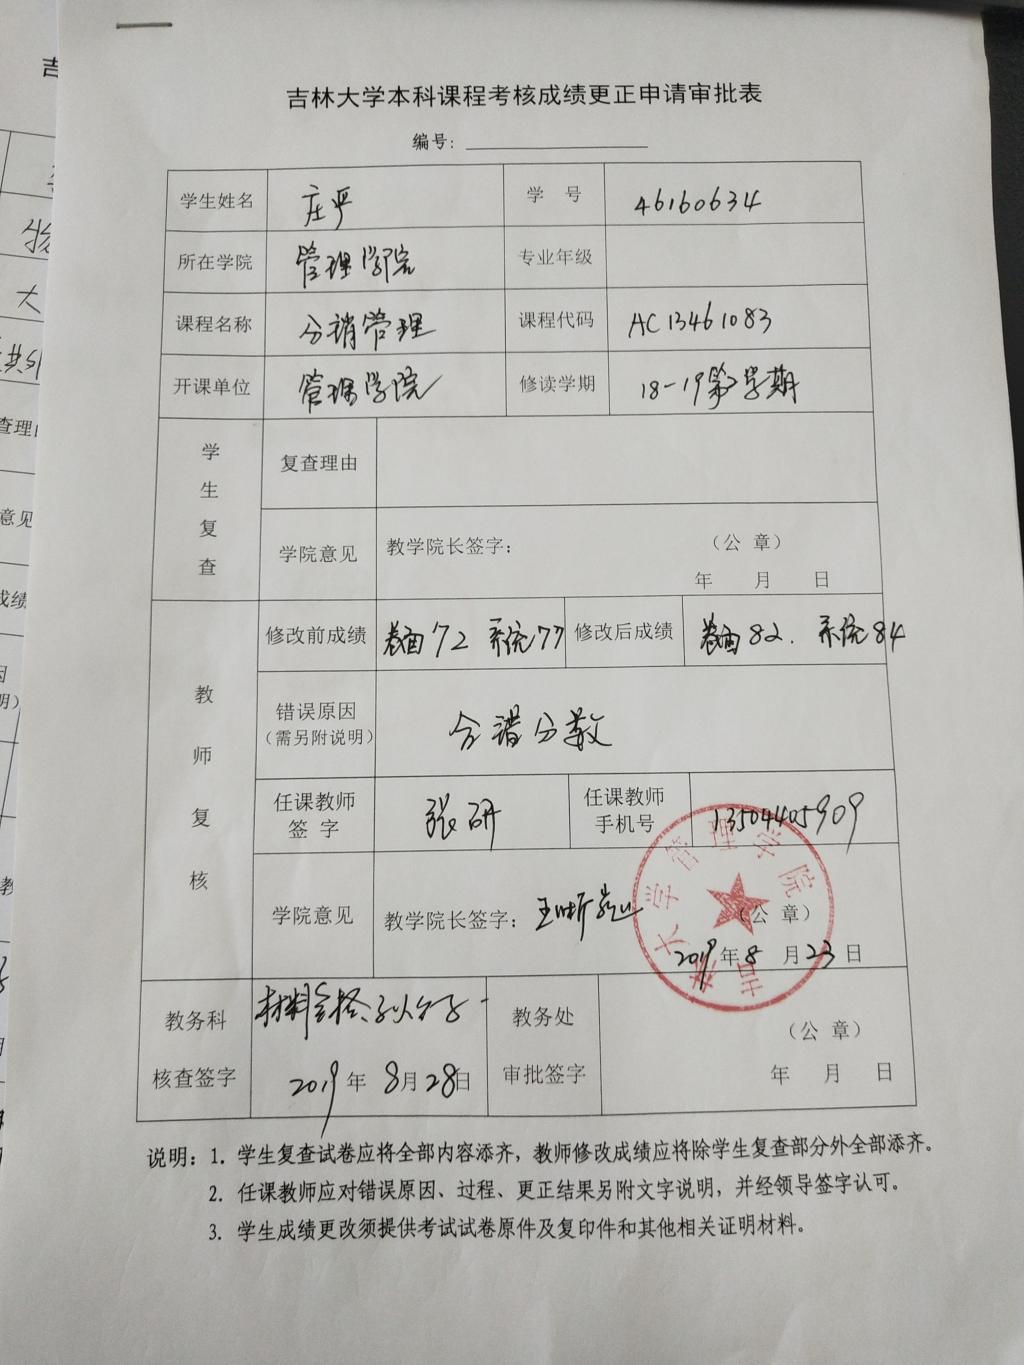 吉林大学本科课程考核成绩更正申请审批表
编号：
学生姓名 庄严 学 号 46160634
所在学院 管理学院 专业年级
课程名称 分销管理 课程代码 AC13461083
开课单位 管理学院 修读学期 18-19第2学期
学生复查
复查理由
学院意见 教学院长签字： （公 章）
年 月 日
教师复核
修改前成绩 卷面72 系统77 修改后成绩 卷面82. 系统84
错误原因
（需另附说明）
合错分数
任课教师签字 张研 任课教师手机号 13504405909
学院意见 教学院长签字： （公 章）
2019年8月23日
吉林大学管理学院
教务科核查签字 材料合格
2019年8月28日
教务处审批签字 （公 章）
年 月 日
说明：1. 学生复查试卷应将全部内容添齐，教师修改成绩应将除学生复查部分外全部添齐。
2. 任课教师应对错误原因、过程、更正结果另附文字说明，并经领导签字认可。
3. 学生成绩更改须提供考试试卷原件及复印件和其他相关证明材料。